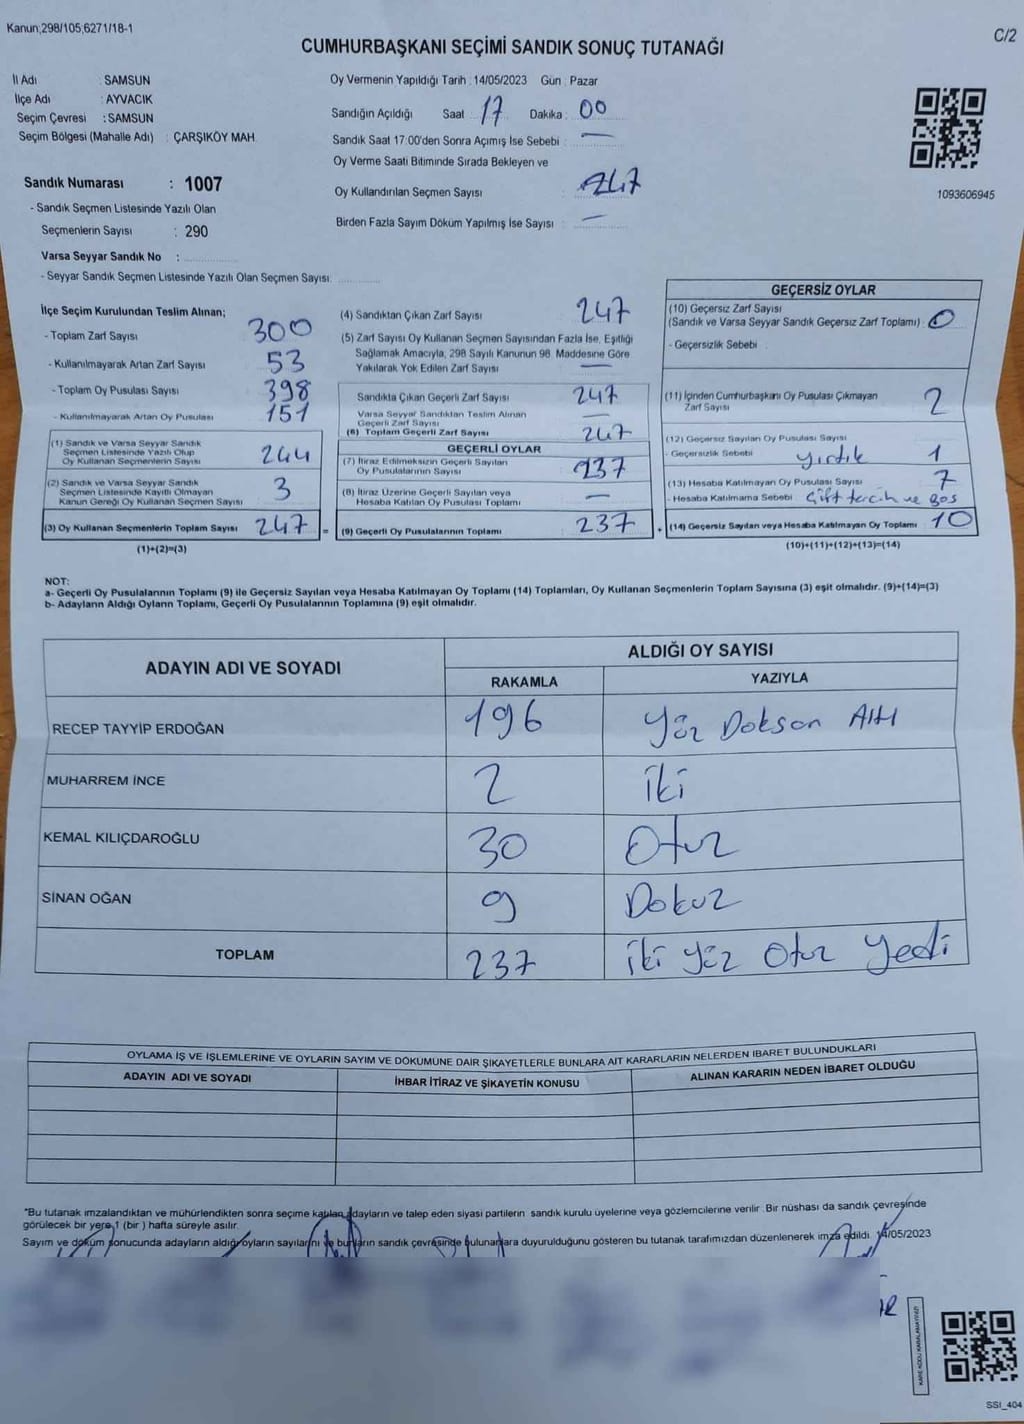 Kanun;298/105;6271/18-1
C/2
CUMHURBAŞKANI SEÇİMİ SANDIK SONUÇ TUTANAĞI
İl Adı : SAMSUN
İlçe Adı : AYVACIK
Seçim Çevresi : SAMSUN
Seçim Bölgesi (Mahalle Adı) : ÇARŞIKÖY MAH.
Sandık Numarası : 1007
- Sandık Seçmen Listesinde Yazılı Olan
Seçmenlerin Sayısı : 290
Varsa Seyyar Sandık No :
- Seyyar Sandık Seçmen Listesinde Yazılı Olan Seçmen Sayısı:
Oy Vermenin Yapıldığı Tarih : 14/05/2023 Gün : Pazar
Sandığın Açıldığı Saat 17 Dakika : 00
Sandık Saat 17:00'den Sonra Açımış İse Sebebi : —
Oy Verme Saati Bitiminde Sırada Bekleyen ve
Oy Kullandırılan Seçmen Sayısı : 247
Birden Fazla Sayım Döküm Yapılmış İse Sayısı : —
1093606945
İlçe Seçim Kurulundan Teslim Alınan;
- Toplam Zarf Sayısı 300
- Kullanılmayarak Artan Zarf Sayısı 53
- Toplam Oy Pusulası Sayısı 398
- Kullanılmayarak Artan Oy Pusulası 151
(1) Sandık ve Varsa Seyyar Sandık
Seçmen Listesinde Yazılı Olup
Oy Kullanan Seçmenlerin Sayısı 244
(2) Sandık ve Varsa Seyyar Sandık
Seçmen Listesinde Kayıtlı Olmayan
Kanun Gereği Oy Kullanan Seçmen Sayısı 3
(3) Oy Kullanan Seçmenlerin Toplam Sayısı 247 =
(1)+(2)=(3)
(4) Sandıktan Çıkan Zarf Sayısı 247
(5) Zarf Sayısı Oy Kullanan Seçmen Sayısından Fazla İse, Eşitliği
Sağlamak Amacıyla, 298 Sayılı Kanunun 98. Maddesine Göre
Yakılarak Yok Edilen Zarf Sayısı —
Sandıkta Çıkan Geçerli Zarf Sayısı 247
Varsa Seyyar Sandıktan Teslim Alınan
Geçerli Zarf Sayısı —
(6) Toplam Geçerli Zarf Sayısı 247
GEÇERLİ OYLAR
(7) İtiraz Edilmeksizin Geçerli Sayılan
Oy Pusulalarının Sayısı 237
(8) İtiraz Üzerine Geçerli Sayılan veya
Hesaba Katılan Oy Pusulası Toplamı —
(9) Geçerli Oy Pusulalarının Toplamı 237 +
GEÇERSİZ OYLAR
(10) Geçersiz Zarf Sayısı
(Sandık ve Varsa Seyyar Sandık Geçersiz Zarf Toplamı) : 0
- Geçersizlik Sebebi :
(11) İçinden Cumhurbaşkanı Oy Pusulası Çıkmayan
Zarf Sayısı 2
(12) Geçersiz Sayılan Oy Pusulası Sayısı 1
- Geçersizlik Sebebi yırtık
(13) Hesaba Katılmayan Oy Pusulası Sayısı 7
- Hesaba Katılmama Sebebi Çift tercih ve Boş
(14) Geçersiz Sayılan veya Hesaba Katılmayan Oy Toplamı 10
(10)+(11)+(12)+(13)=(14)
NOT:
a- Geçerli Oy Pusulalarının Toplamı (9) ile Geçersiz Sayılan veya Hesaba Katılmayan Oy Toplamı (14) Toplamları, Oy Kullanan Seçmenlerin Toplam Sayısına (3) eşit olmalıdır. (9)+(14)=(3)
b- Adayların Aldığı Oyların Toplamı, Geçerli Oy Pusulalarının Toplamına (9) eşit olmalıdır.
ADAYIN ADI VE SOYADI
ALDIĞI OY SAYISI
RAKAMLA YAZIYLA
RECEP TAYYİP ERDOĞAN 196 Yüz Doksan Altı
MUHARREM İNCE 2 İki
KEMAL KILIÇDAROĞLU 30 Otuz
SİNAN OĞAN 9 Dokuz
TOPLAM 237 İki Yüz Otuz Yedi
OYLAMA İŞ VE İŞLEMLERİNE VE OYLARIN SAYIM VE DÖKÜMÜNE DAİR ŞİKAYETLERLE BUNLARA AİT KARARLARIN NELERDEN İBARET BULUNDUKLARI
ADAYIN ADI VE SOYADI İHBAR İTİRAZ VE ŞİKAYETİN KONUSU ALINAN KARARIN NEDEN İBARET OLDUĞU
"Bu tutanak imzalandıktan ve mühürlendikten sonra seçime katılan adayların ve talep eden siyasi partilerin sandık kurulu üyelerine veya gözlemcilerine verilir. Bir nüshası da sandık çevresinde
görülecek bir yere 1 (bir ) hafta süreyle asılır.
Sayım ve döküm sonucunda adayların aldığı oyların sayılarını ve bunların sandık çevresinde bulunanlara duyurulduğunu gösteren bu tutanak tarafımızdan düzenlenerek imza edildi. 14/05/2023
SSI_404